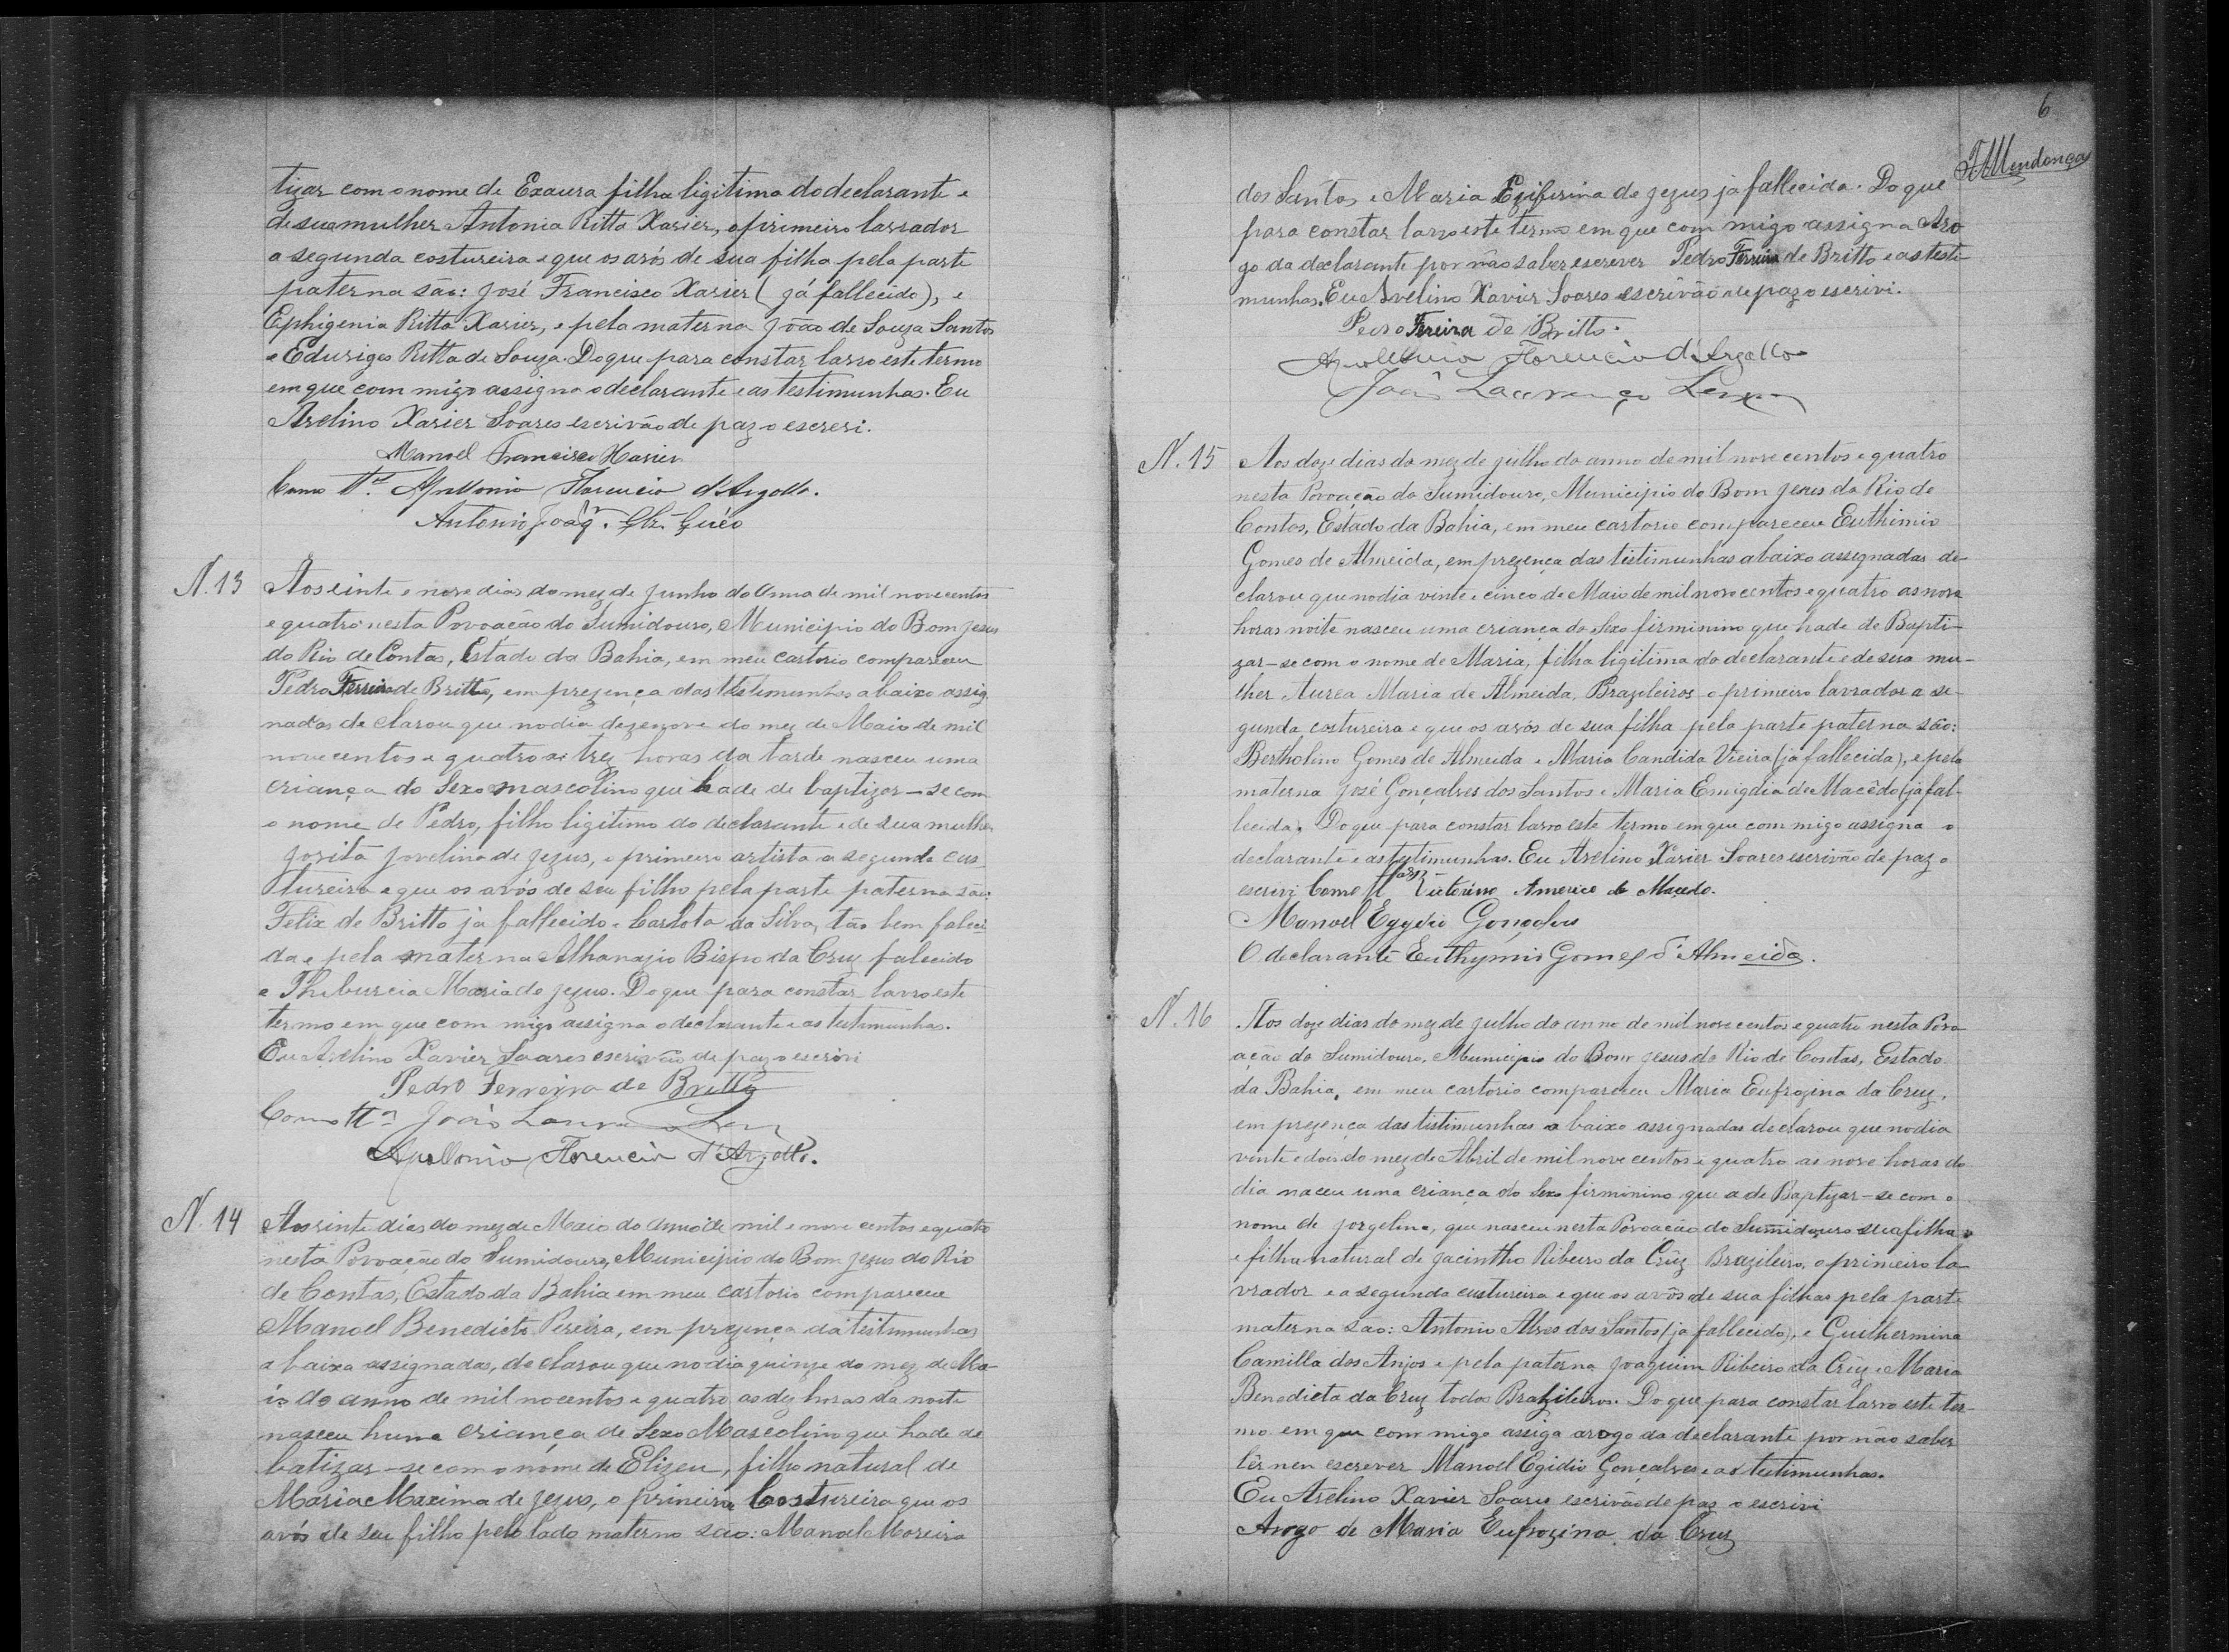 tizar com o nome de Exaura filha ligitima do declarante e
de sua mulher Antonia Ritta Xavier, o primeiro lavrador
a segunda costureira e que os avós de sua filha pela parte
paterna são: José Francisco Xavier (já fallecido), e
Ephigenia Ritta Xavier, e pela materna João de Souza Santos
e Eduriges Ritta de Souza. Do que para constar lavro este termo
em que com migo assigna o declarante e as testimunhas. Eu
Avelino Xavier Soares escrivão de paz o escrevi.
Manoel Francisco Xavier
Como Tt. Apollonio Florencio d'Argollo.
Antonio Joaqm.
N. 13 Aos vinte e nove dias do mez de Junho do Anno de mil nove centos
e quatro nesta Povoação do Sumidouro, Municipio do Bom Jesus
do Rio de Contas, Estado da Bahia, em meu cartorio compareceu
Pedro Ferreira de Britto, em prezença das testimunhas abaixo assig
nadas declarou que no dia dezenove do mez de Maio de mil
nove centos e quatro as trez horas da tarde nasceu uma
criança do Sexo mascolino que hade de baptizar-se com
o nome de Pedro, filho ligitimo do declarante e de sua mulher
Jovita Jovelina de Jezus, o primeiro artista a segunda cus
tureira e que os avós de seu filho pela parte paterna são:
Felix de Britto já fallecido e Carlota da Silva, tão bem faleci
da e pela materna Athanazio Bispo da Cruz falecido
e Thiburcia Maria de Jezus. Do que para constar lavro este
termo em que com migo assigna o declarante e as testimunhas.
Eu Avelino Xavier Soares escrivão de paz o escrivi
Pedro Ferreira de Britto
Como Tta João
Apollonio Florencio d'Argollo.
N. 14 Aos vinte dias do mez de Maio do Anno de mil e nove centos e quatro
nesta Povoação do Sumidouro, Municipio do Bom Jezus do Rio
de Contas, Estado da Bahia em meu cartorio compareceu
Manoel Benedicto Pereira, em prezença da testimunhas
abaixo assignadas, declarou que no dia quinze do mez de Ma-
io do anno de mil nocentos e quatro as dez horas da noite
nasceu huma criança de Sexo Mascolino que hade de
batizar-se com o nome de Elizeu, filho natural de
Maria Maxima de Jezus, o primeira Costureira que os
avós de seu filho pelo lado materno são: Manoel Moreira
6
dos Santos e Maria Eziferina de Jezus já fallecida. Do que
para constar lavro este termo em que com migo assigna Aro
go da declarante por não saber escrever Pedro Ferreira de Britto e as teste
munhas. Eu Avelino Xavier Soares escrivão de paz o escrivi.
Pedro Fereira de Britto.
Apollonio Florencio d'Argollo
João Lourenço
N. 15 Aos doze dias do mez de julho do anno de mil nove centos e quatro
nesta Povoação do Sumidouro, Municipio do Bom Jezus do Rio de
Contas, Estado da Bahia, em meu cartorio compareceu Euthimio
Gomes de Almeida, em prezença das testimunhas abaixo assegnadas de-
clarou que no dia vinte e cinco de Maio de mil nove centos e quatro as nove
horas noite nasceu uma criança do Sexo firminino que hade de Bapti-
zar-se com o nome de Maria, filha ligitima do declarante e de sua mu-
lher Aurea Maria de Almeida, Brazileiros o primeiro lavrador a se-
gunda costureira e que os avós de sua filha pela parte paterna são:
Bertholino Gomes de Almeida e Maria Candida Vieira (já fallecida), e pela
materna José Gonçalves dos Santos e Maria Emigdia de Macêdo (já fal-
lecida). Do que para constar lavro este termo em que com migo assigna o
declarante e as testimunhas. Eu Avelino Xavier Soares escrivão de paz o
escrivi Como Victorino Americo de Macedo.
Manoel Egydio Gonçalves
O declarante Euthymio Gomes d'Almeida.
N. 16 Aos doze dias do mez de Julho do anno de mil nove centos e quatro nesta Povo
ação do Sumidouro, Municipio do Bom Jesus do Rio de Contas, Estado
da Bahia, em meu cartorio compareceu Maria Eufrozina da Cruz,
em prezença das testimunhas abaixo assignadas declarou que no dia
vinte e dois do mez de Abril de mil nove centos e quatro as nove horas do
dia naceu uma criança do Sexo firminino que a de Baptizar-se com o
nome de Jorgelina, que nasceu nesta Povoação do Sumidouro sua filha
e filha natural de Jacintho Ribeiro da Crûz Brazileiro, o primeiro la-
vrador e a segunda custureira e que os avós de sua filha pela parte
materna são: Antonio Alves dos Santos (já fallecido), e Guilhermina
Camilla dos Anjos e pela paterna Joaquim Ribeiro da Crûz e Maria
Benedicta da Cruz todos Brazileiros. Do que para constar lavro este ter-
mo em que com migo assiga arogo da declarante por não saber
lêr nen escrever Manoel Egidio Gonçalves e as testimunhas.
Eu Avelino Xavier Soares escrivão de paz o escrivi
Arogo de Maria Eufrozina da Cruz